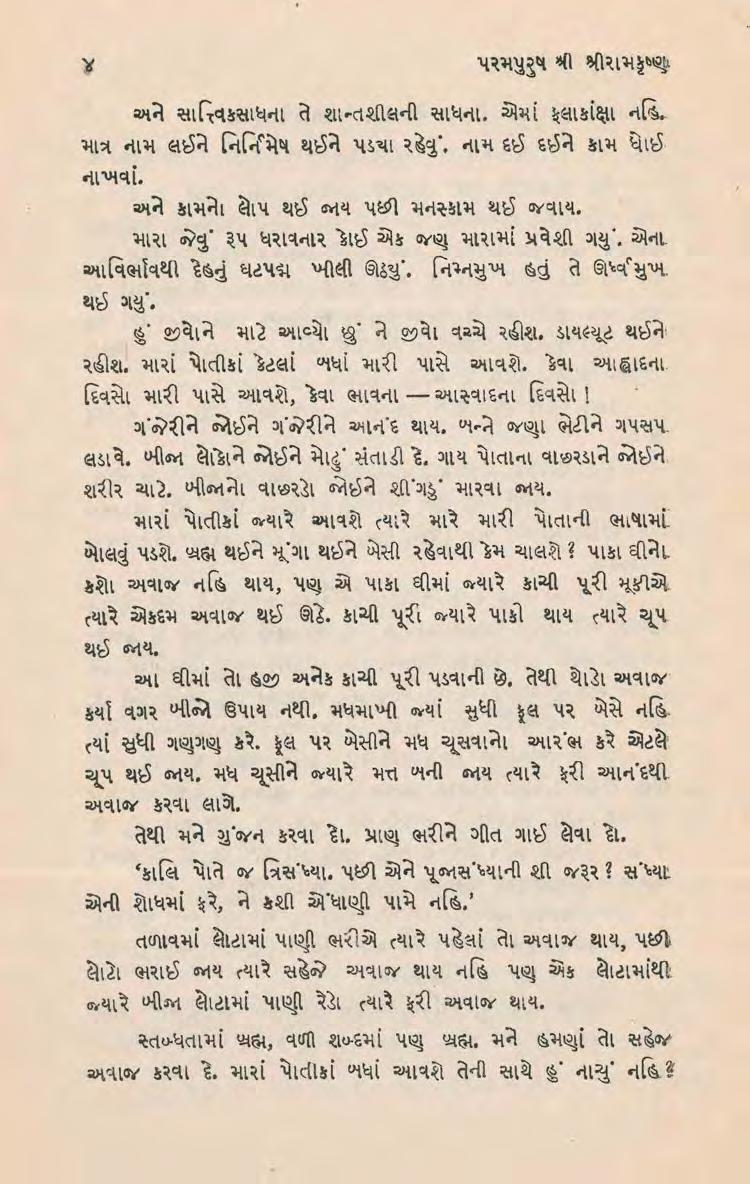 ૪ પરમપુરુષ શ્રી શ્રીરામકૃષ્ણ
અને સાત્ત્વિકસાધના તે શાન્તશીલની સાધના. એમાં ફલાકાંક્ષા નહિ.
માત્ર નામ લઈને નિર્નિમેષ થઈને પડયા રહેવું. નામ દઈ દઈને કામ ધોઈ
નાખવાં.
અને કામનો લોપ થઈ જાય પછી મનસ્કામ થઈ જવાય.
મારા જેવું રૂપ ધરાવનાર કોઈ એક જણ મારામાં પ્રવેશી ગયું. એના
આવિર્ભાવથી દેહનું ઘટપદ્મ ખીલી ઊઠયું. નિમ્નમુખ હતું તે ઊર્ધ્વમુખ
થઈ ગયું.
હું જીવોને માટે આવ્યો છું ને જીવો વચ્ચે રહીશ. ડાયલ્યૂટ થઈને
રહીશ. મારાં પોતીકાં કેટલાં બધાં મારી પાસે આવશે. કેવા આહ્લાદના
દિવસો મારી પાસે આવશે, કેવા ભાવના — આસ્વાદના દિવસો !
ગંજેરીને જોઈને ગંજેરીને આનંદ થાય. બન્ને જણા ભેટીને ગપસપ
લડાવે. બીજા લોકોને જોઈને મોઢું સંતાડી દે. ગાય પોતાના વાછરડાને જોઈને
શરીર ચાટે. બીજાનો વાછરડો જોઈને શીંગડું મારવા જાય.
મારાં પોતીકાં જ્યારે આવશે ત્યારે મારે મારી પોતાની ભાષામાં
બોલવું પડશે. બ્રહ્મ થઈને મૂંગા થઈને બેસી રહેવાથી કેમ ચાલશે ? પાકા ઘીનો
કશો અવાજ નહિ થાય, પણ એ પાકા ઘીમાં જ્યારે કાચી પૂરી મૂકીએ
ત્યારે એકદમ અવાજ થઈ ઊઠે. કાચી પૂરી જ્યારે પાકી થાય ત્યારે ચૂપ
થઈ જાય.
આ ઘીમાં તો હજી અનેક કાચી પૂરી પડવાની છે. તેથી થોડો અવાજ
કર્યા વગર બીજો ઉપાય નથી. મધમાખી જ્યાં સુધી ફૂલ પર બેસે નહિ
ત્યાં સુધી ગણગણ કરે. ફૂલ પર બેસીને મધ ચૂસવાનો આરંભ કરે એટલે
ચૂપ થઈ જાય. મધ ચૂસીને જ્યારે મત્ત બની જાય ત્યારે ફરી આનંદથી
અવાજ કરવા લાગે.
તેથી મને ગુંજન કરવા દો. પ્રાણ ભરીને ગીત ગાઈ લેવા દો.
‘કાલિ પોતે જ ત્રિસંધ્યા. પછી એને પૂજાસંધ્યાની શી જરૂર ? સંધ્યા
એની શોધમાં ફરે, ને કશી એંધાણી પામે નહિ.’
તળાવમાં લોટામાં પાણી ભરીએ ત્યારે પહેલાં તો અવાજ થાય, પછી
લોટો ભરાઈ જાય ત્યારે સહેજે અવાજ થાય નહિ પણ એક લોટામાંથી
જ્યારે બીજા લોટામાં પાણી રેડો ત્યારે ફરી અવાજ થાય.
સ્તબ્ધતામાં બ્રહ્મ, વળી શબ્દમાં પણ બ્રહ્મ. મને હમણાં તો સહેજ
અવાજ કરવા દે. મારાં પોતીકાં બધાં આવશે તેની સાથે હું નાચું નહિ ?